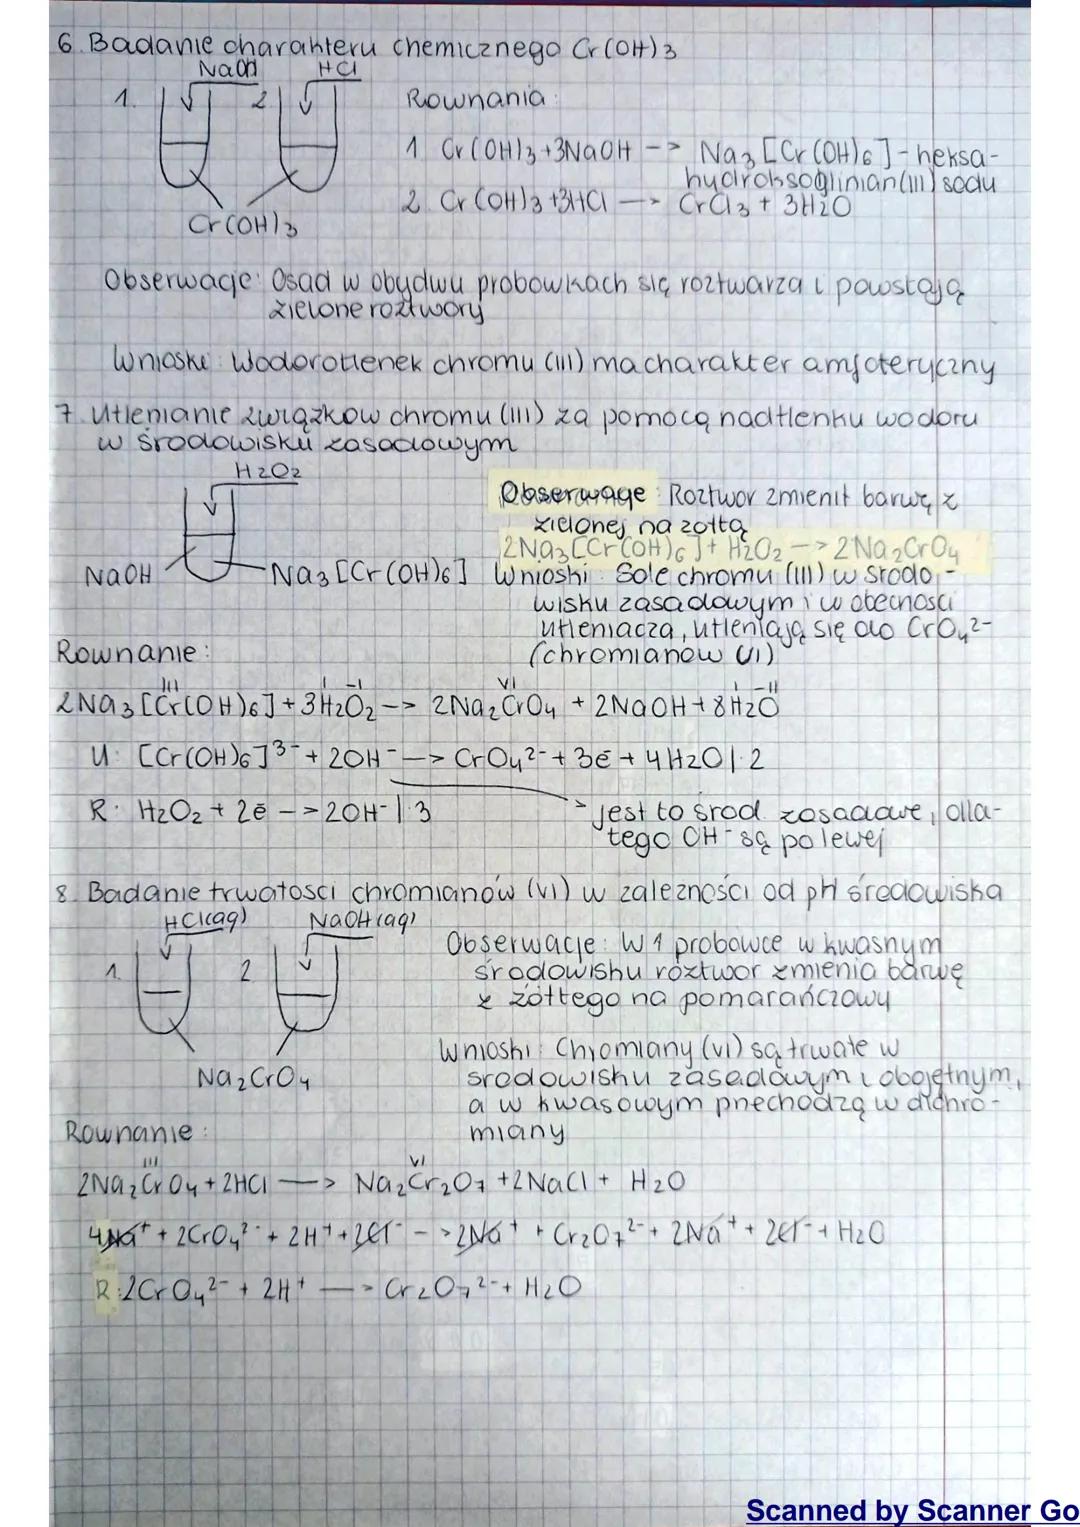 6. Badanie charakteru chemicznego Cr(OH)3
NaOH HCl
1. 2. Rownania:
1 Cr(OH)3+3NaOH -> Na3[Cr(OH)6] - heksa-
hydroksoglinian(III) sodu
2 Cr(OH)3+3HCl —> CrCl3 + 3H2O
Cr(OH)3
Obserwacje: Osad w obydwu probowkach się roztwarza i powstają
zielone roztwory
Wnioski: Wodorotlenek chromu (III) ma charakter amfoteryczny
7. Utlenianie związkow chromu (III) za pomocą nadtlenku wodoru
w środowisku zasadowym
H2O2
Obserwacje: Roztwor zmienił barwę z
zielonej na żółtą
2Na3[Cr(OH)6]+ H2O2 —> 2Na2CrO4
NaOH Na3[Cr(OH)6] Wnioski: Sole chromu (III) w srodo-
wisku zasadowym i w obecnosci
utleniacza, utleniają się do CrO4²-
(chromianow VI)
Rownanie:
III I -I VI I -II
2Na3[Cr(OH)6]+3H2O2 -> 2Na2CrO4 + 2NaOH+8H2O
U: [Cr(OH)6]3- + 2OH- —> CrO4²- + 3ē + 4H2O |·2
R: H2O2 + 2ē -> 2OH- |·3
jest to środ. zasadowe, dla-
tego OH- są po lewej
8. Badanie trwałosci chromianów (VI) w zależności od pH środowiska
HCl(aq) NaOH(aq)
1. 2
Obserwacje: W 1 probowce w kwasnym
środowisku roztwor zmienia barwę
z żółtego na pomarańczowy
Wnioski: Chromiany (VI) są trwałe w
srodowisku zasadowym i obojętnym,
a w kwasowym przechodzą w dichro-
miany
Na2CrO4
Rownanie:
III VI
2Na2CrO4 + 2HCl —> Na2Cr2O7 +2NaCl + H2O
4Na+ + 2CrO4²- + 2H+ + 2Cl- -> 2Na+ + Cr2O7²- + 2Na+ + 2Cl- + H2O
R:2CrO4²- + 2H+ —> Cr2O7²- + H2O
Scanned by Scanner Go